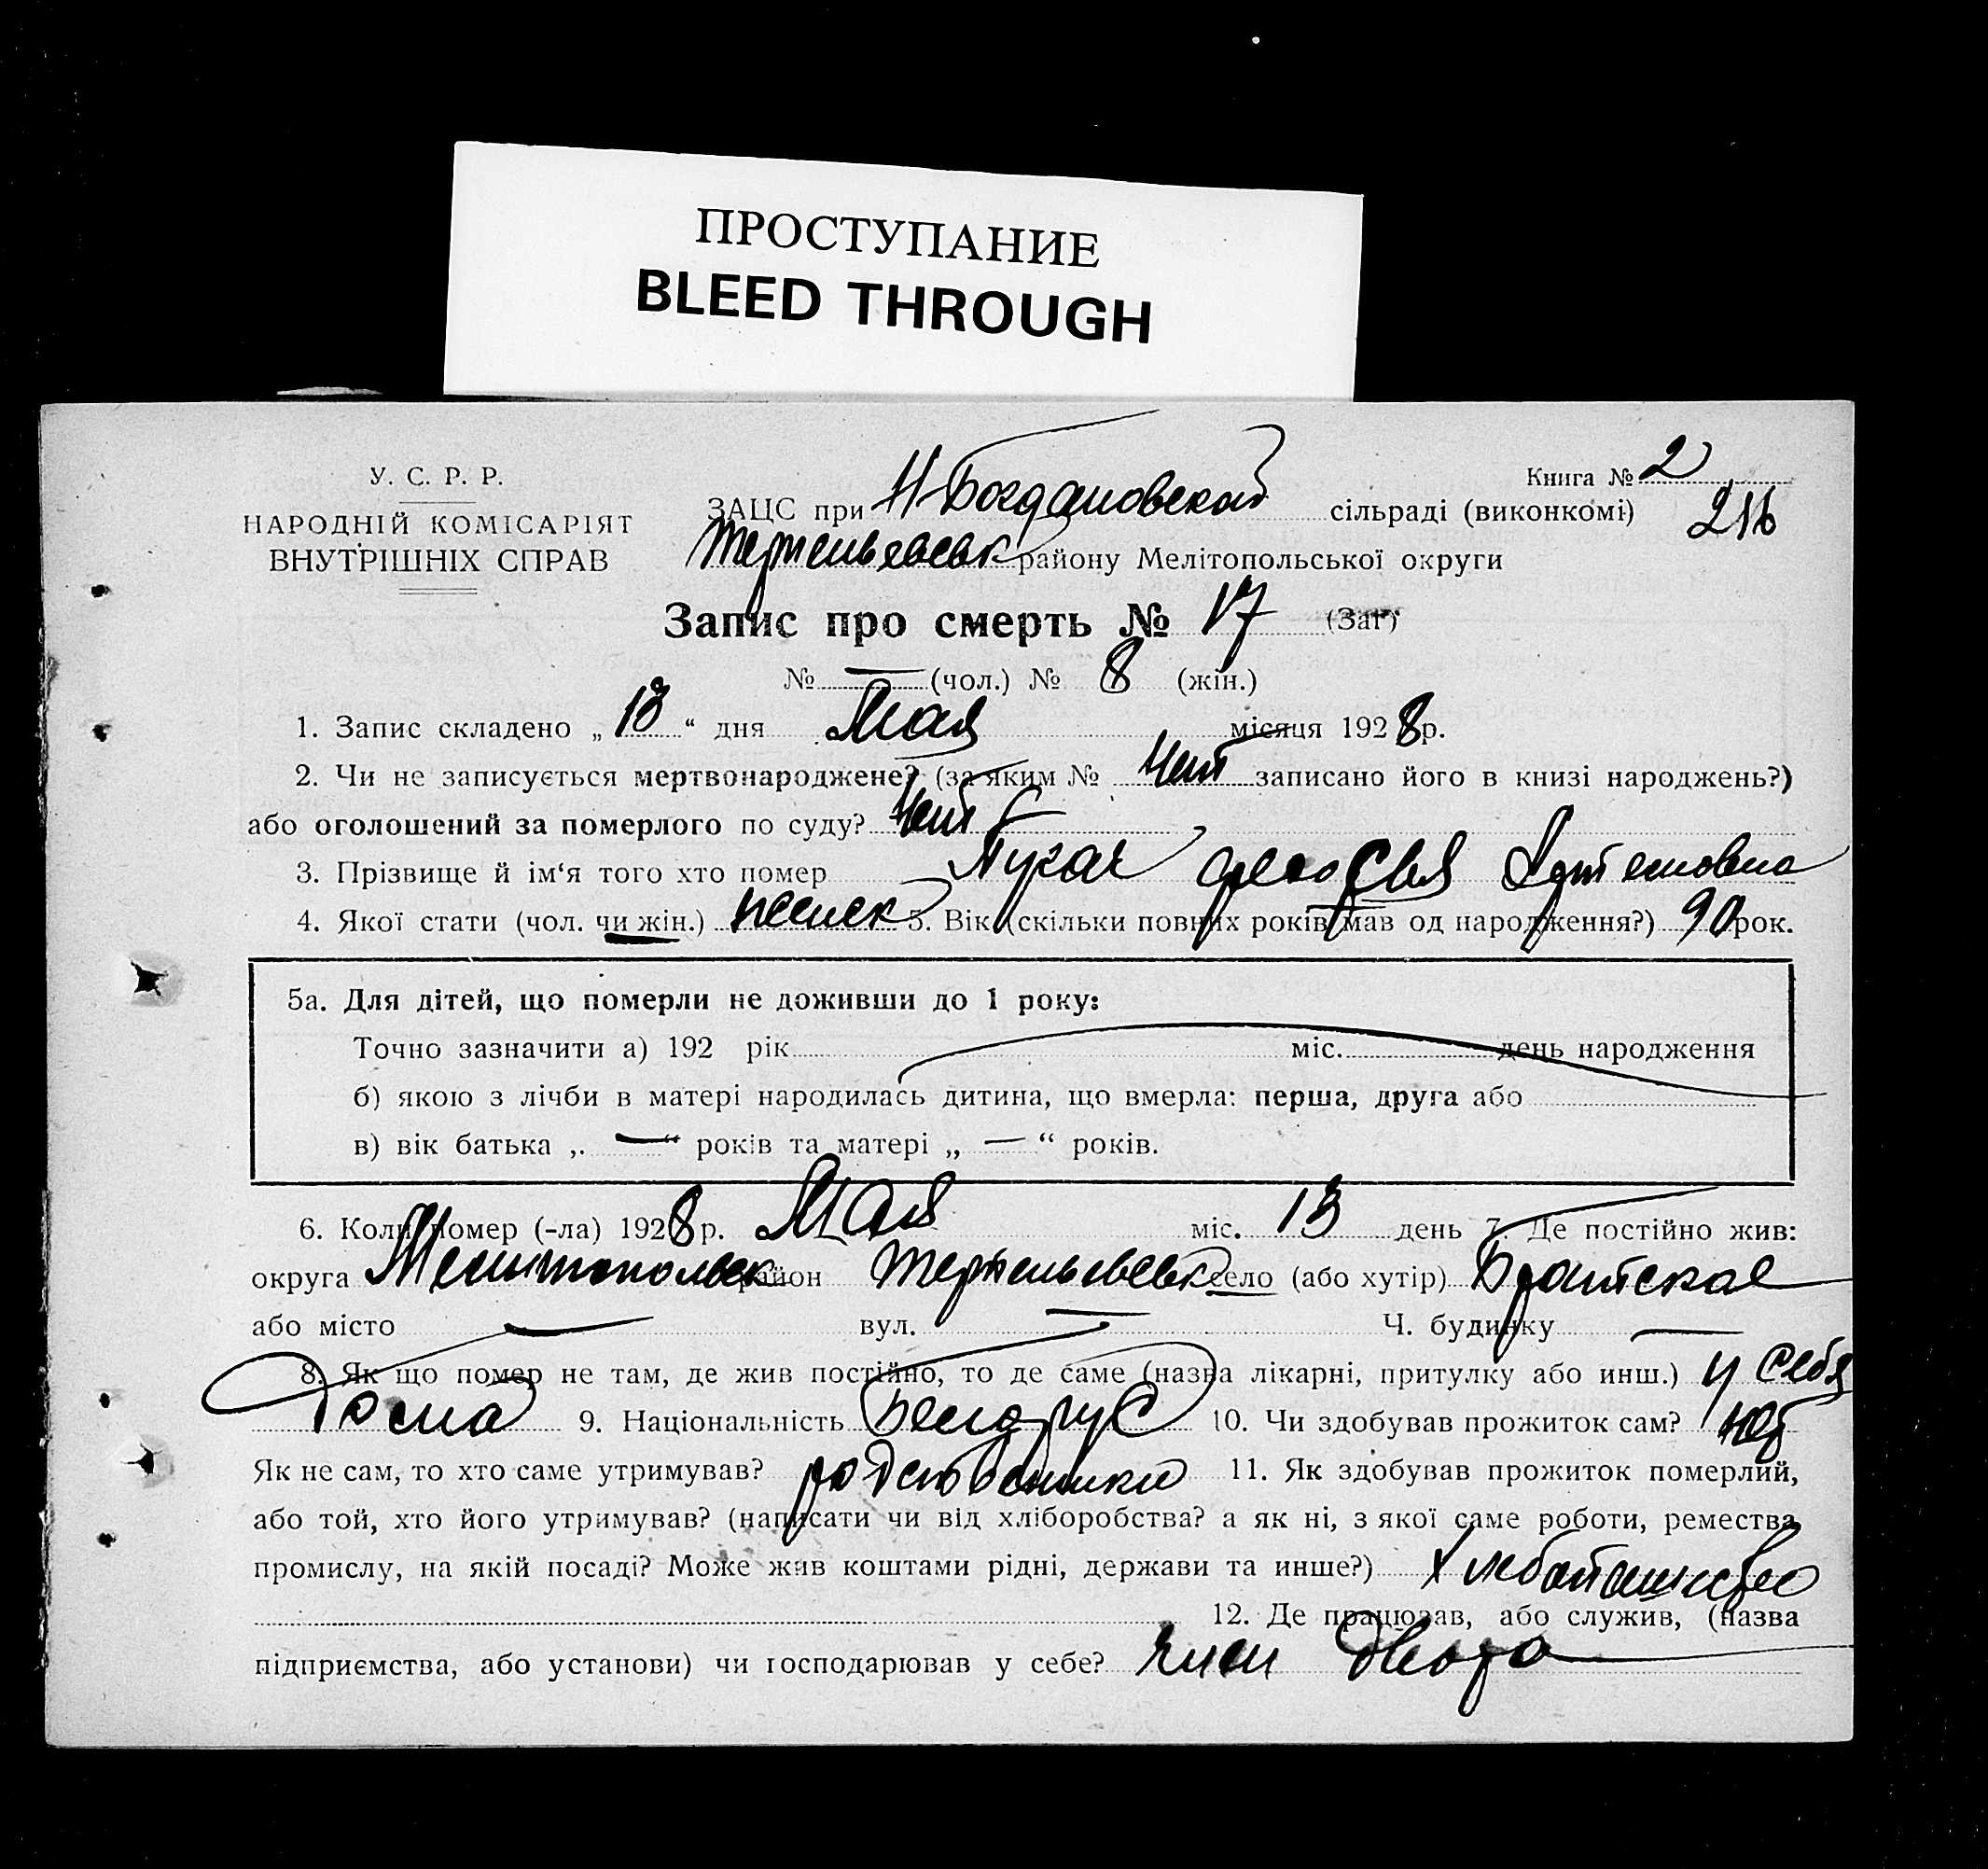 ПРОСТУПАНИЕ
BLEED THROUGH
У. С. Р. Р.
НАРОДНІЙ КОМІСАРІЯТ
ВНУТРІШНІХ СПРАВ
Книга № 2
ЗАЦС при Н Богдановской сільраді (виконкомі) 216
района Мелітопольської округи
Запис про смерть № 17 (Заг)
№ — (чол.) № 8 (жін.)
1. Запис складено „ 13 “ дня Мая місяця 1928 р.
2. Чи не записується мертвонароджене? (за яким № Нет записано його в книзі народжень?)
або оголошений за померлого по суду? Нет
3. Прізвище й ім‘я того хто померло Пугач Артемовна
4. Якої стати (чол. чи жін.) женск 5. Вік (скільки повних років мав од народження?) 90 рок.
5а. Для дітей, що померли не доживши до 1 року:
Точно зазначити а) 192 рік міс. день народження
б) якою з лічби в матері народилась дитина, що вмерла: перша, друга або
в) вік батька „ — “ років та матері „ — “ років.
6. Коли помер (-ла) 1928 р. Мая міс. 13 день 7. Де постійно жив:
округа Мелитопольск район село (або хутір) Братская
або місто — вул. — Ч. будинку —
8. Як що помер не там, де жив постійно, то де саме (назва лікарні, притулку або инш.) у себя
дома 9. Національність 10. Чи здобував прожиток сам? нет
Як не сам, то хто саме утримував? родственники 11. Як здобував прожиток померлий,
або той, хто його утримував? (написати чи від хліборобства? а як ні, з якої саме роботи, ремества,
промислу, на якій посаді? Може жив коштами рідні, держави та инше?)
12. Де працював, або служив, (назва
підприємства, або установи) чи господарював у себе? член двора